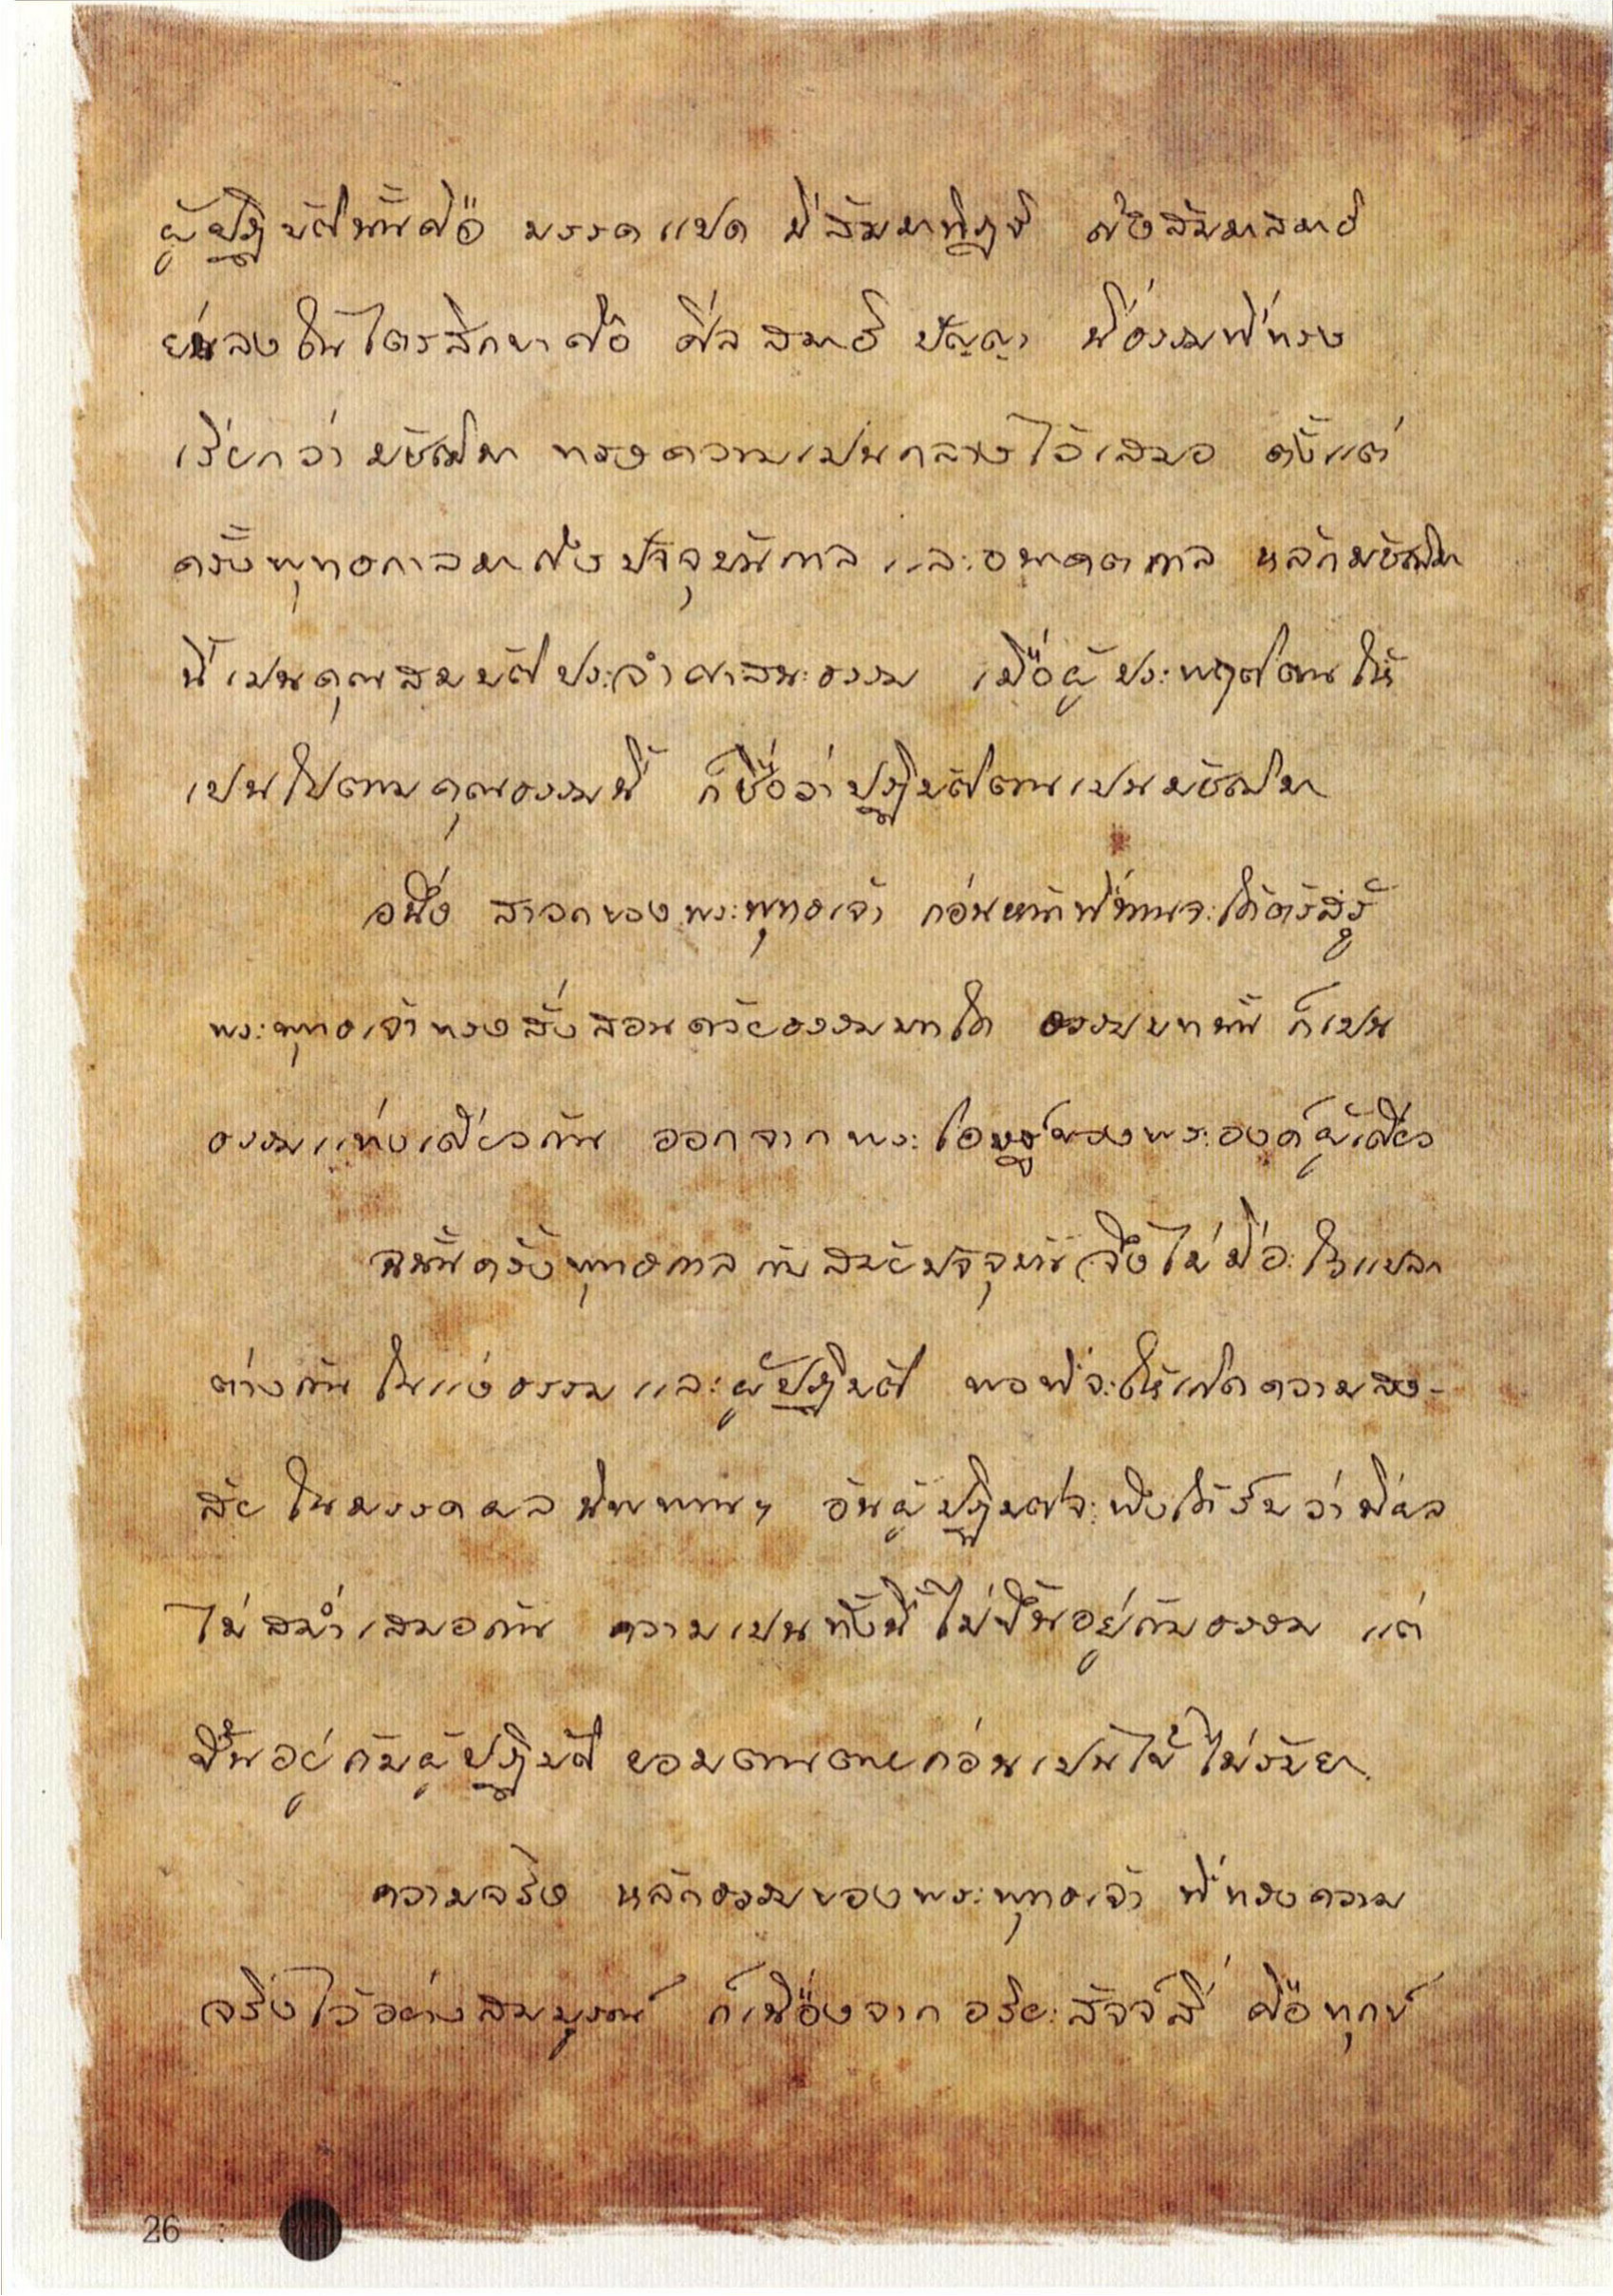 ผู้ปฏิบัตินั้นคือ มรรคแปด มีสัมมาทิฏฐิ ถึงสัมมาสมาธิ
ย่นลงในไตรสิกขาคือ ศีล สมาธิ ปัญญา นี่ธรรมที่ทรง
เรียกว่า มัชฌิมา ทรงความเปนกลางไว้เสมอ ตั้งแต่
ครั้งพุทธกาลมาถึงปัจจุบันกาล และอนาคตกาล หลักมัชฌิมา
นี้เปนคุณสมบัติประจำศาสนะธรรม เมื่อผู้ประพฤติตนให้
เปนไปตามคุณธรรมนี้ ก็ชื่อว่าปฏิบัติตนเปนมัชฌิมา
อนึ่ง สาวกของพระพุทธเจ้า ก่อนหน้าที่ท่านจะได้ตรัสรู้
พระพุทธเจ้าทรงสั่งสอนด้วยธรรมบทใด ธรรมบทนั้น ก็เปน
ธรรมแท่งเดียวกัน ออกจากพระโอษฐ์ของพระองค์ผู้เดียว
ฉนั้นครั้งพุทธกาล กับสมัยปัจจุบัน จึงไม่มีอะไรแปลก
ต่างกัน ในแง่ธรรม และผู้ปฏิบัติ พอที่จะให้เกิดความสง-
สัย ในมรรคผล นิพพานฯ อันผู้ปฏิบัติจะพึงได้รับว่ามีผล
ไม่สม่ำเสมอกัน ความเปนทั้งนี้ไม่ขึ้นอยู่กับธรรม แต่
ขึ้นอยู่กับผู้ปฏิบัติ ยอมตนตายก่อนเปนไข้ ไม่รับยา
ความจริง หลักธรรมของพระพุทธเจ้า ที่ทรงความ
จริงไว้อย่างสมบูรณ์ ก็เนื่องจาก อริยะสัจจ์สี่ คือทุกข์
26 :